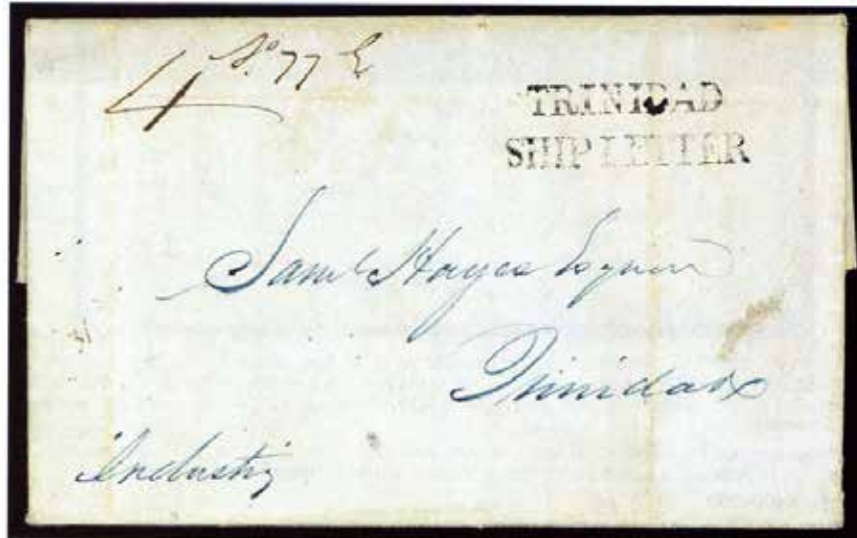 4 No 77 E
TRINIDAD
SHIP LETTER
Saml Hayes Esquire
Trinidad
Industry